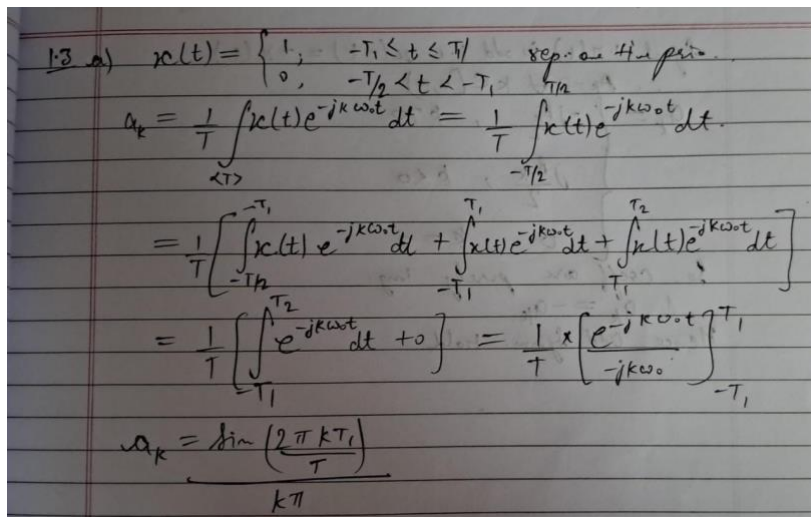 1.3 a) x(t) = { 1, -T₁ ≤ t ≤ T/
0, -T/2 < t < -T₁
aₖ = 1/T ∫_{<T>} x(t) e^{-jkω₀t} dt = 1/T ∫_{-T/2}^{T/2} x(t) e^{-jkω₀t} dt.
= 1/T [ ∫_{-T/2}^{-T₁} x(t) e^{-jkω₀t} dt + ∫_{-T₁}^{T₁} x(t) e^{-jkω₀t} dt + ∫_{T₁}^{T₂} x(t) e^{-jkω₀t} dt ]
= 1/T [ ∫_{-T₁}^{T₂} e^{-jkω₀t} dt + 0 ] = 1/T × [ e^{-jkω₀t} / -jkω₀ ]_{-T₁}^{T₁}
aₖ = sin (2πkT₁/T) / kπ